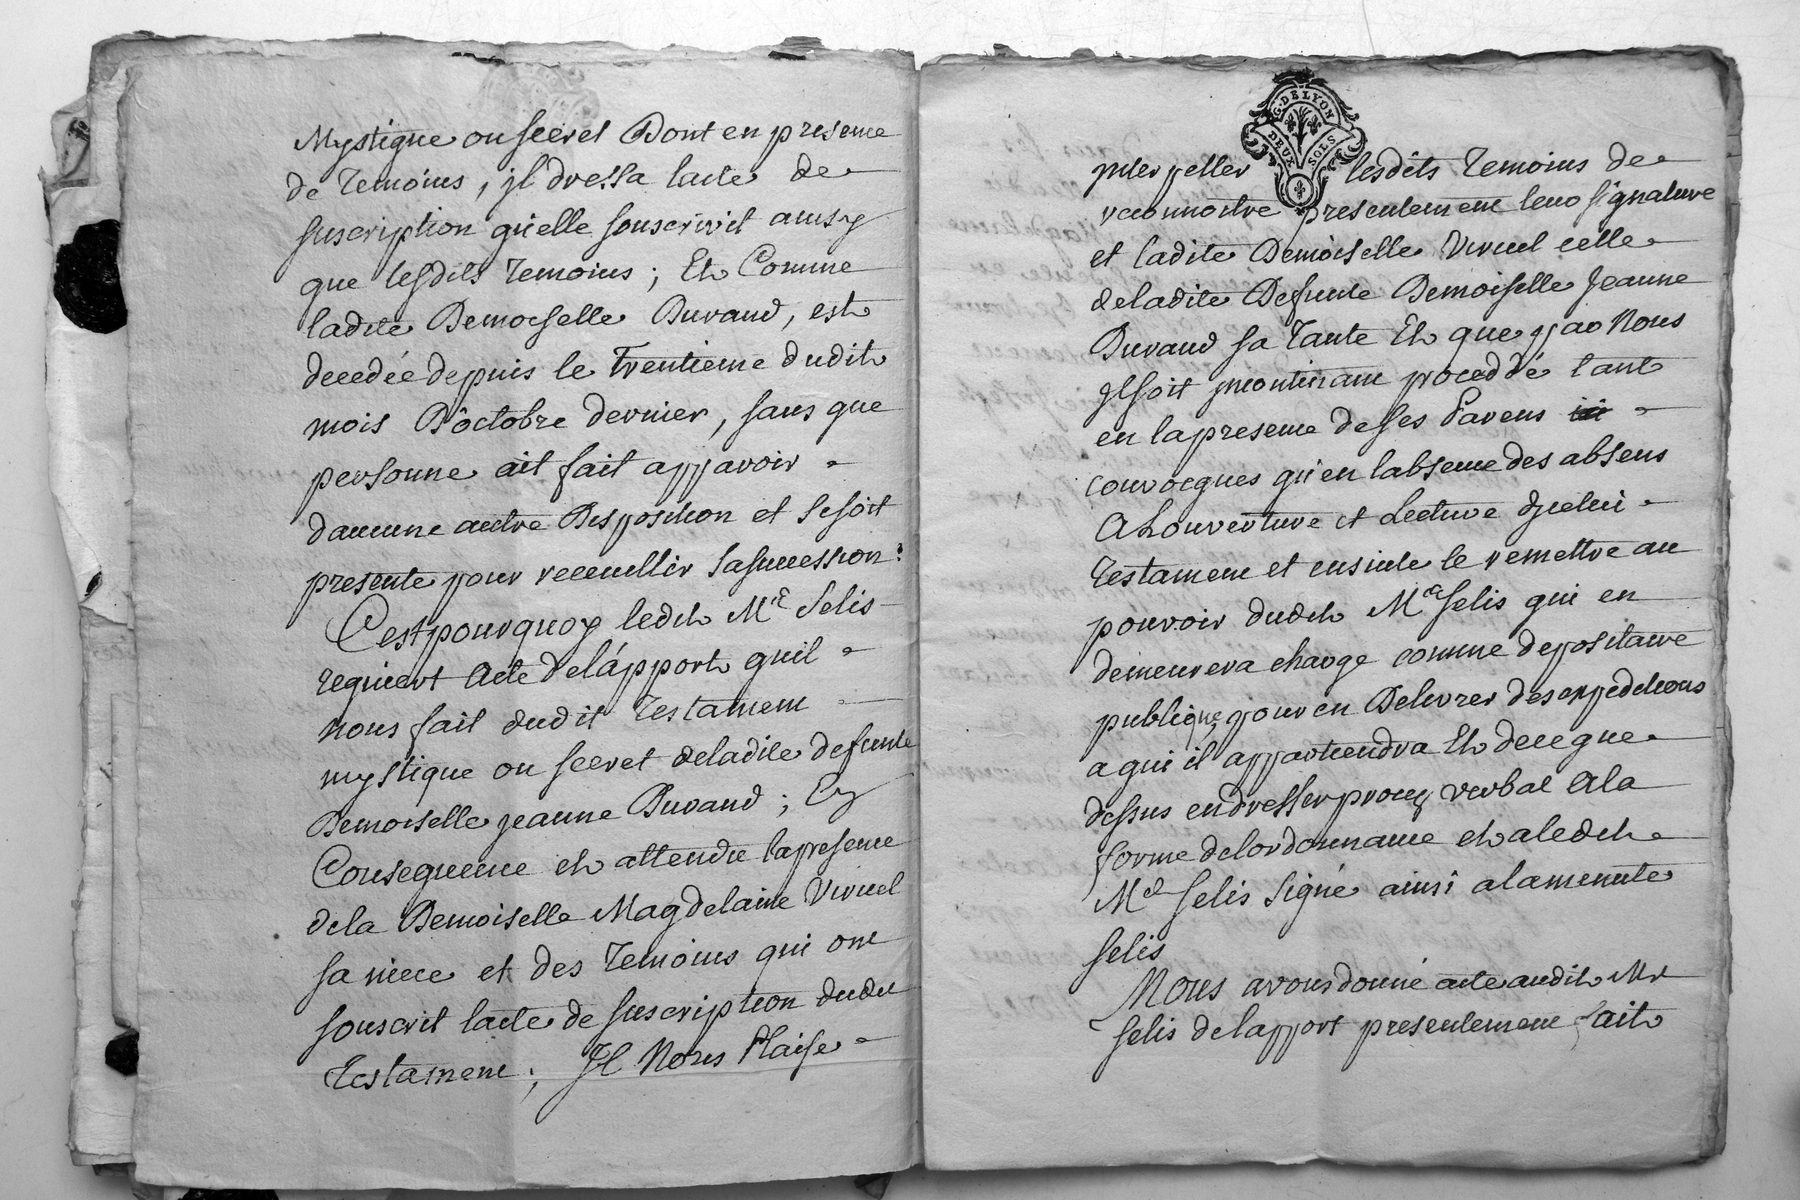 Mystique ou secret Dont en presence
de Temoins, jl dressa lacte de
suscription quelle souscrivit ainsy
que lesdits Temoins; Et Comme
ladite Demoiselle Durand, est
decedée depuis le Trentieme dudit
mois D'octobre dernier, sans que
personne ait fait apparoir
daucune autre Disposition et se soit
presenté pour recueillir sa succession:
C'est pourquoy ledit Me Selis
requiert Acte de l'apport quil
nous fait dudit Testament
mystique ou secret deladite defunte
Demoiselle jeanne Durand; En
Consequence et attendu la presence
dela Demoiselle Magdelaine Viruel
sa niece et des Temoins qui ont
souscrit lacte de suscription dudit
Testament; Jl Nous Plaise
G. DE LYON
DEUX SOLS
jnterpeller lesdits Temoins de
reconnoitre presentement leur signature
et ladite Demoiselle Viruel celle
deladite Defunte Demoiselle Jeanne
Durand sa Tante Et que par Nous
Jl soit jncontinant proceddé tant
en la presence de ses Parens
convocques qu'en labsence des absens
A Louverture et Lecture djcelui
Testament et ensuite le remettre au
pouvoir dudit Me Selis qui en
demeurera chargé comme depositaire
publique pour en Delivrer des expeditions
a qui il appartiendra Et dece que
dessus en dresser procez verbal Ala
forme delordonnance et a ledit
Me Selis Signé ainsi alaminute
Selis
Nous avons donné acte audit Me
Selis de lapport presentement fait